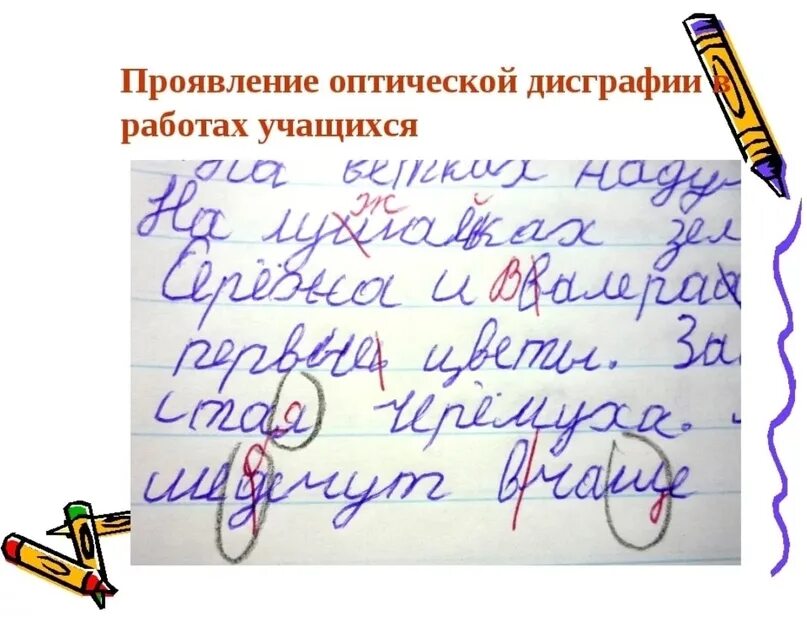 Проявление оптической дисграфии в
работах учащихся
На ветках наду
На лушайках зел
Серёжа и Валера
первые цветы. За
стая черёмуха.
щебечут в чаще